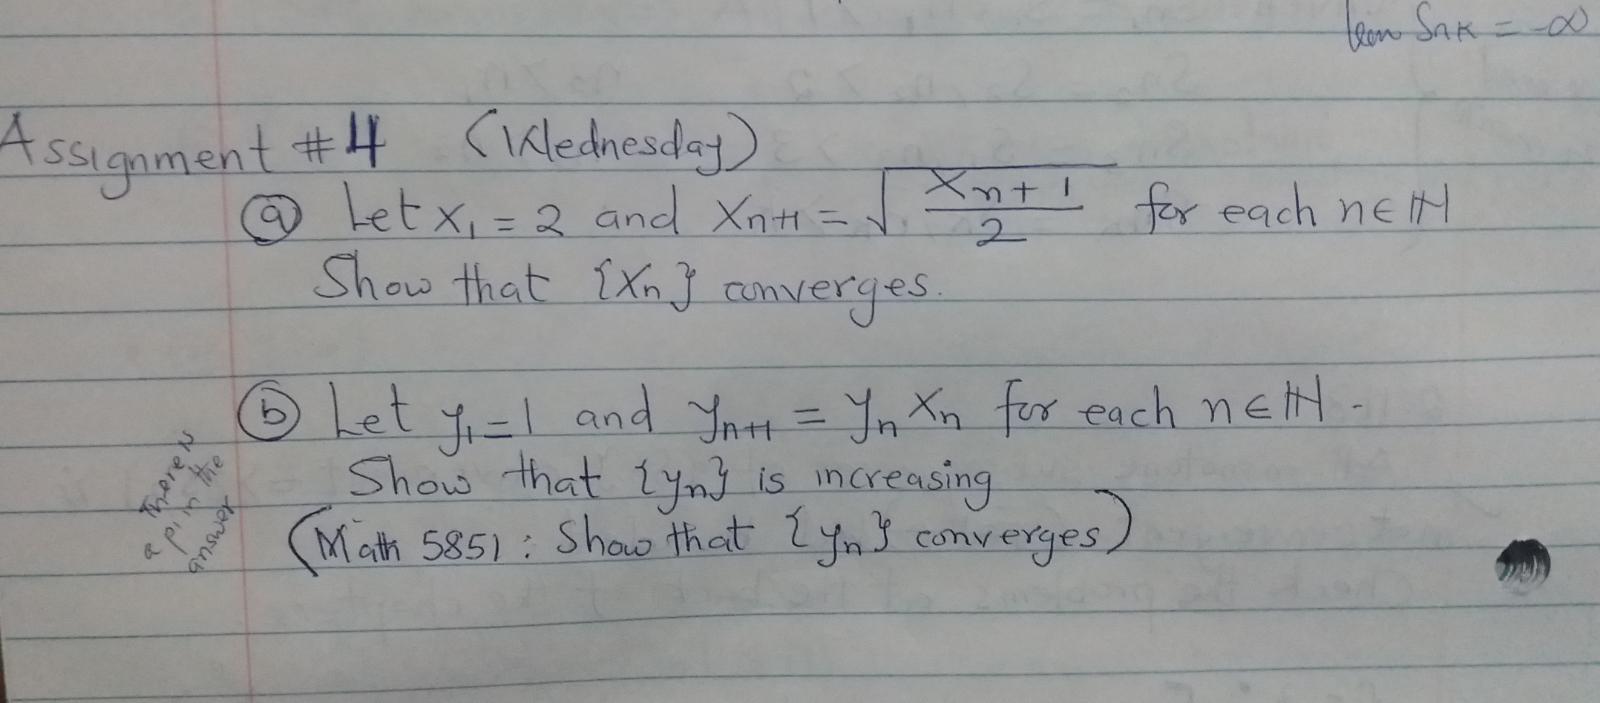 lim Snk = -∞
Assignment #4 (Wednesday)
(a) Let x₁ = 2 and xn+1 = √((xn+1)/2) for each n∈ℕ
Show that {xn} converges.
(b) Let y₁=1 and yn+1 = yn xn for each n∈ℕ.
Show that {yn} is increasing
(Math 5851: Show that {yn} converges)
There is
a pi in the
answer